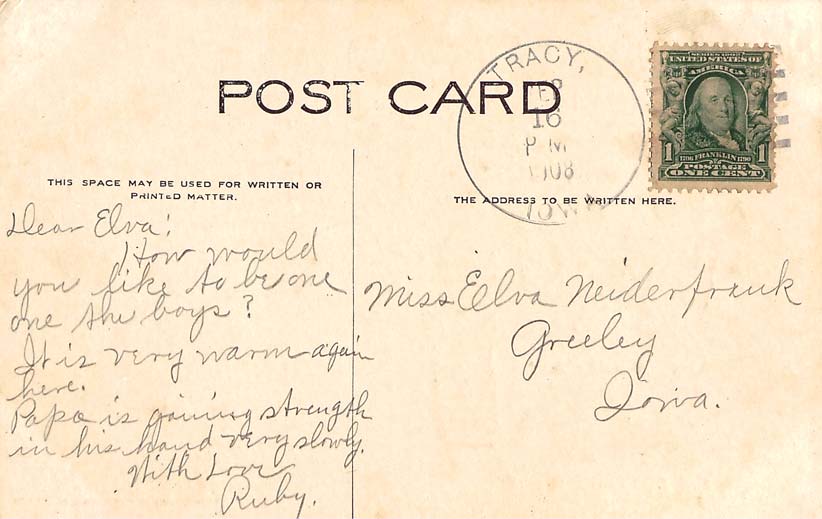 POST CARD
TRACY,
16
P M
1908
IOWA
SERIES 1902
UNITED STATES OF
AMERICA
1 1706 FRANKLIN 1790 1
POSTAGE
ONE CENT
THIS SPACE MAY BE USED FOR WRITTEN OR
PRINTED MATTER.
THE ADDRESS TO BE WRITTEN HERE.
Dear Elva!
How would
you like to be one
one the boys?
It is very warm again
here.
Papa is gaining strength
in his hand very slowly.
With Love
Ruby.
Miss Elva Neiderfrank
Greeley
Iowa.